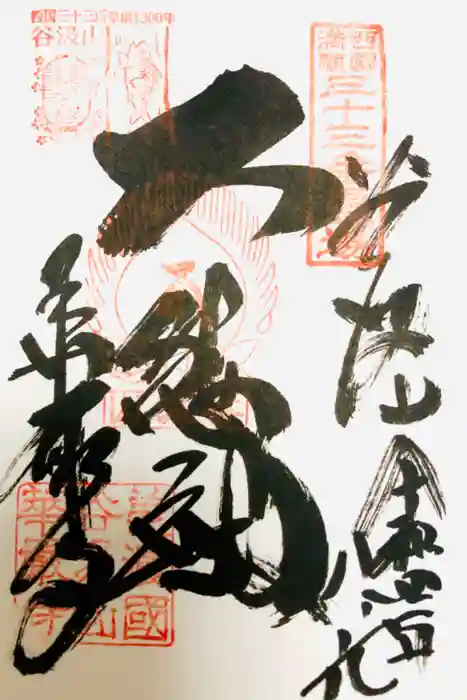 西國
満願
三十三番霊場
谷汲山
大悲殿
華厳寺
西国三十三所草創1300年
谷汲山
美濃國
谷汲山
華嚴寺